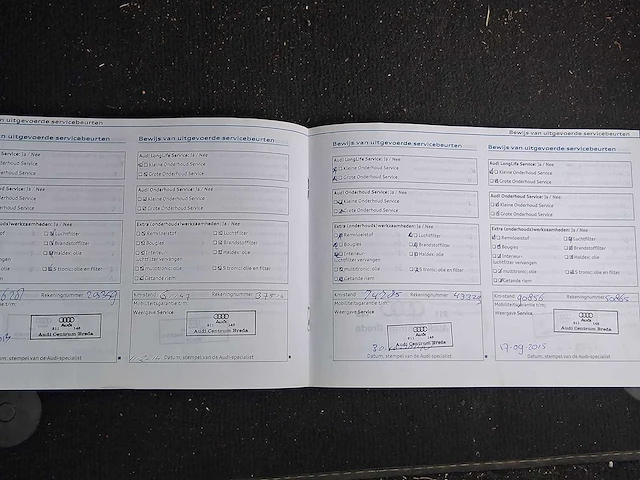 n uitgevoerde servicebeurten
Bewijs van uitgevoerde servicebeurten
n uitgevoerde servicebeurten
Service: Ja / Nee
nderhoud Service
nderhoud Service
Service: Ja / Nee
nderhoud Service
nderhoud Service
oudswerkzaamheden)
Luchtfilter
Brandstoffilter
Haldex: olie
S tronic: olie en filter
Rekeningnummer:
e t/m:
Audi
811 148
Audi Centrum Breda
Datum, stempel van de Audi-specialist
Bewijs van uitgevoerde servicebeurten
Audi LongLife Service: Ja / Nee
Kleine Onderhoud Service
Grote Onderhoud Service
Audi Onderhoud Service: Ja / Nee
Kleine Onderhoud Service
Grote Onderhoud Service
Extra (onderhouds)werkzaamheden)
Remvloeistof Luchtfilter
Bougies Brandstoffilter
Interieur- Haldex: olie
luchtfilter vervangen
multitronic: olie S tronic: olie en filter
Getande riem
Kmstand: Rekeningnummer:
Mobiliteitsgarantie t/m:
Weergave Service
Audi
811 148
Audi Centrum Breda
Datum, stempel van de Audi-specialist
Bewijs van uitgevoerde servicebeurten
Audi LongLife Service: Ja / Nee
Kleine Onderhoud Service
Grote Onderhoud Service
Audi Onderhoud Service: Ja / Nee
Kleine Onderhoud Service
Grote Onderhoud Service
Extra (onderhouds)werkzaamheden)
Remvloeistof Luchtfilter
Bougies Brandstoffilter
Interieur- Haldex: olie
luchtfilter vervangen
multitronic: olie S tronic: olie en filter
Getande riem
Kmstand: 74785 Rekeningnummer:
Mobiliteitsgarantie t/m:
Weergave Service
Audi
811 148
Audi Centrum Breda
Datum, stempel van de Audi-specialist
Bewijs van uitgevoerde servicebeurten
Audi LongLife Service: Ja / Nee
Kleine Onderhoud Service
Grote Onderhoud Service
Audi Onderhoud Service: Ja / Nee
Kleine Onderhoud Service
Grote Onderhoud Service
Extra (onderhouds)werkzaamheden)
Remvloeistof Luchtfilter
Bougies Brandstoffilter
Interieur- Haldex: olie
luchtfilter vervangen
multitronic: olie S tronic: olie en filter
Getande riem
Kmstand: 90856 Rekeningnummer: 50865
Mobiliteitsgarantie t/m:
Weergave Service
Audi
811 148
Audi Centrum Breda
17-09-2015
Datum, stempel van de Audi-specialist